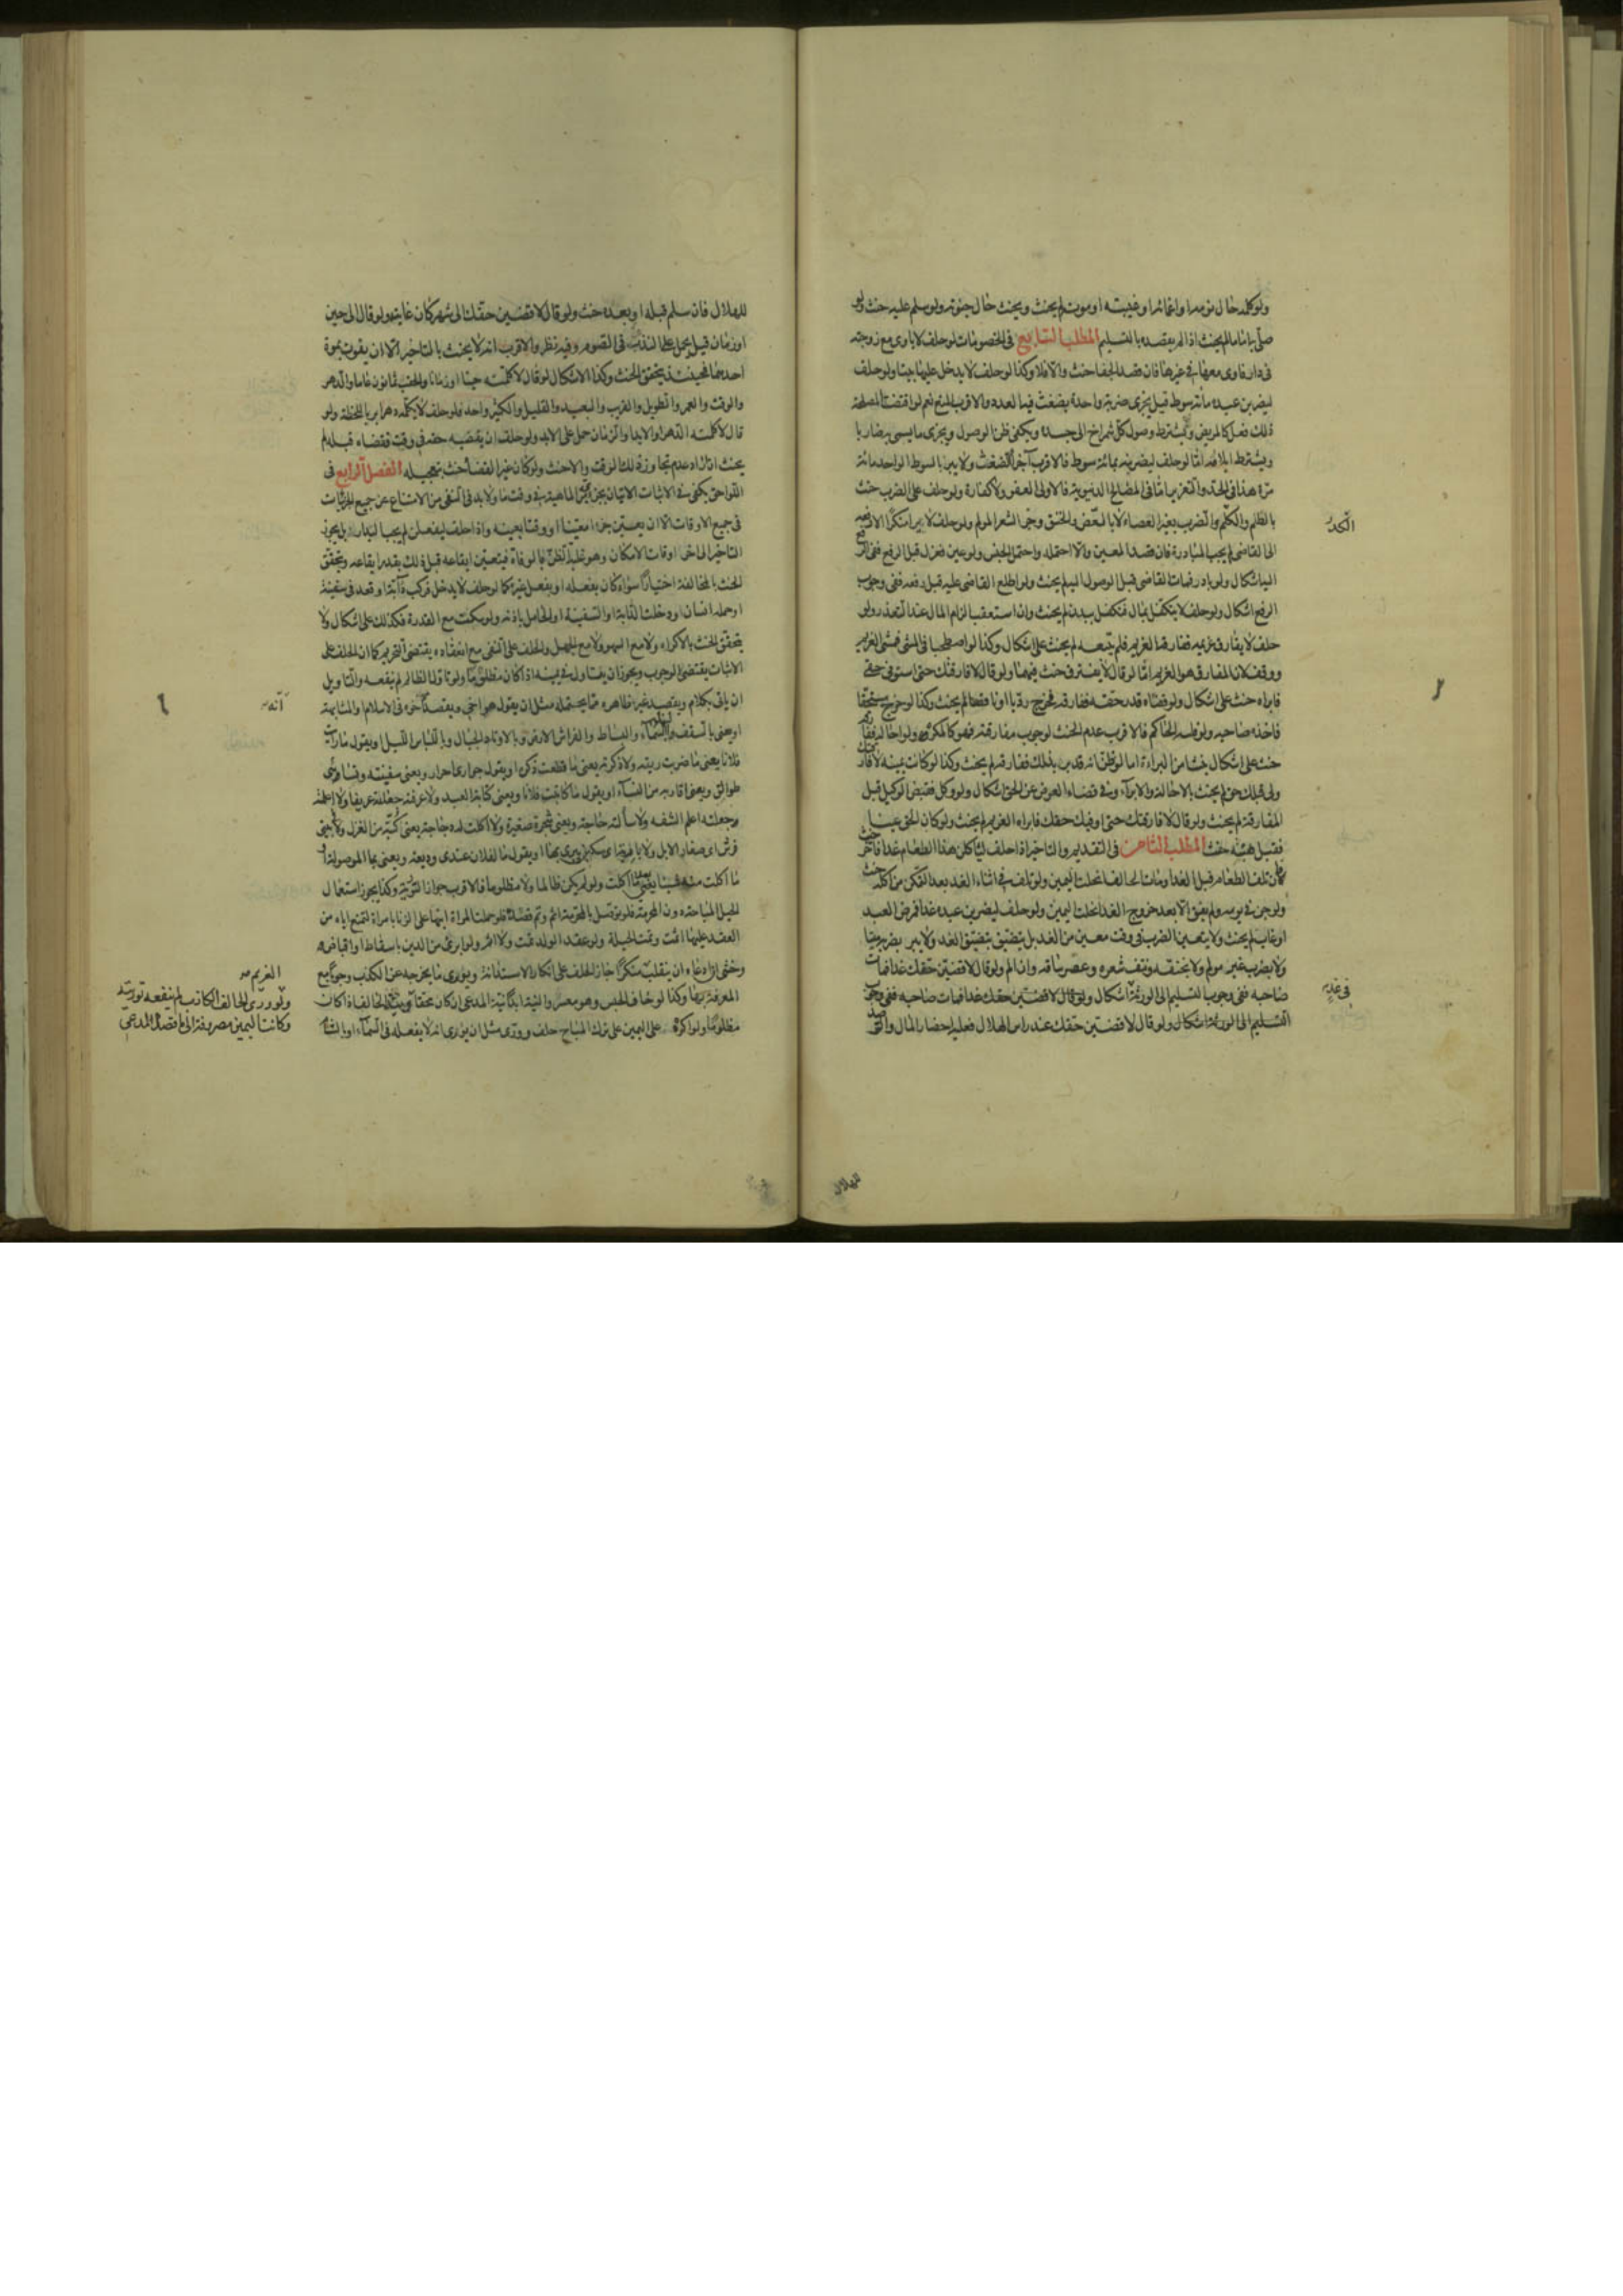 ولو كلمه حال نومه او اغمائه او غيبته او موته لم يحنث ويحنث حال جنونه ولو سلم عليه حنث ولو
صلى به اماما لم يحنث اذا لم يقصده بالتسليم المطلب السابع في الخصومات لو حلف لا ياوى مع زوجته
في دار فاوى معها في غيرها فان قصد الجفا حنث والا فلا وكذا لو حلف لا يدخل عليها بيتا ولو حلف
ليضربن عبده مائة سوط قيل يجزى ضربة واحدة بضغث فيه العدد والاقرب المنع نعم لو اقتضت المصلحة
ذلك فعل كالمريض ويشترط وصول كل شمراخ الى جسده ويكفى ظن الوصول ويجزى ما يسمى به ضاربا
ويشترط ايلامه امّا لو حلف ليضربنه بمائة سوط فالاقرب اجزاء الضغث ولا يبر بالسوط الواحد مائة
مرة هذا في الحد والتعزير امّا في المصالح الدنيوية فالاولى العفو ولا كفارة ولو حلف على الضرب حنث
باللطم واللكم والضرب بغير العصا لا بالعض والخنق وجز الشعر المولم ولو حلف لا يرى منكرا الا رفعه
الى القاضى لم يجب المبادرة فان قصد المعين والا احتمله واحتمل الجنس ولو عين فعزل قبل الرفع ففى الرفع
اليه اشكال ولو بادر فمات القاضى قبل الوصول اليه لم يحنث ولو اطلع القاضى عليه قبل رفعه ففى وجوب
الرفع اشكال ولو حلف لا يتكفل بمال فتكفل ببدن لم يحنث وان استعقب الزام المال عند التعذر ولو
حلف لا يفارق غريمه ففارقه الغريم فلم يتبعه لم يحنث على اشكال وكذا لو اصطحبا في المشى فمشى الغريم
ووقف لان المفارق هو الغريم امّا لو قال لا يفترق حنث فيهما ولو قال لا فارقتك حتى استوفى حقى
فابراه حنث على اشكال ولو قضاه قدر حقه ففارقه فخرج رديا او ناقصا لم يحنث وكذا لو خرج مستحقا
فاخذه صاحبه ولو فلسه الحاكم فالاقرب عدم الحنث لوجوب مفارقته فهو كالمكره ولو احاله ففارقه
حنث على اشكال ينشأ من البراءة اما لو ظن انه قد بر بذلك ففارقه لم يحنث وكذا لو كانت يمينه لا فارقتك
ولى قبلك حق لم يحنث بالاحالة والابراء وفى قضاء العوض عن الحق اشكال ولو وكل فقبض الوكيل قبل
المفارقة لم يحنث ولو قال لا فارقتك حتى اوفيك حقك فابراه الغريم لم يحنث ولو كان الحق عينا
فقبل هبته حنث المطلب الثامن في التقديم والتاخير اذا حلف لياكلن هذا الطعام غدا فاخر حنث
فان تلف الطعام قبل الغد او مات الحالف انحلت اليمين ولو تلف في اثناء الغد بعد التمكن من اكله حنث
ولو جن في يومه ولم يفق الا بعد خروج الغد انحلت اليمين ولو حلف ليضربن عبده غدا فمرض العبد
او غاب لم يحنث ولا يتعين الضرب في وقت معين من الغد بل يتضيق بتضيق الغد ولا يبر بضربه ميتا
ولا بضرب غير مولم ولا بخنقه ونتف شعره وعصر ساقه وان الم ولو قال لاقضين حقك غدا فمات
صاحبه ففى وجوب التسليم الى الورثة اشكال ولو قال لاقضين حقك غدا فمات صاحبه ففى وجوب
التسليم الى الورثة اشكال ولو قال لاقضين حقك عند راس الهلال فعليه احضار المال والترصد
في غد
للهلال
للهلال فان سلم قبله او بعده حنث ولو قال لاقضين حقك الى شهر كان غايته ولو قال الى حين
او زمان قيل يحمل على النذر في الصوم وفيه نظر والاقرب انه لا يحنث بالتاخير الا ان يفوت بموت
احدهما فحينئذ يتحقق الحنث وكذا الاشكال لو قال لا كلمته حينا او زمانا والحقب ثمانون عاما والدهر
والوقت والعمر والطويل والقريب والبعيد والقليل والكثير واحد فلو حلف لا يكلمه دهرا بر باللحظة ولو
قال لا كلمته الدهر او الابد او الزمان حمل على الابد ولو حلف ان يقضيه حقه في وقت فقضاه قبله لم
يحنث ان اراد عدم تجاوز ذلك الوقت والا حنث ولو كان غير القضاء حنث بتعجيله الفصل الرابع في
اللواحق يكفى في الاثبات الاتيان بجزئى الماهية في وقت ما ولا بد في النفى من الامتناع عن جميع الجزئيات
في جميع الاوقات الا ان يعين جزءا معينا او وقتا بعينه واذا حلف ليفعلن لم يجب البدار بل يجوز
التاخير الى اخر اوقات الامكان وهو غلبة الظن بالوفاة فيتعين ايقاعه قبل ذلك بقدر ايقاعه ويتحقق
الحنث بالمخالفة اختيارا سواء كان بفعله او بفعل غيره كما لو حلف لا يدخل فركب دابة او قعد في سفينة
او حمله انسان ودخلت الدابة او السفينة او الحامل باذنه ولو سكت مع القدرة فكذلك على اشكال ولا
يتحقق الحنث بالاكراه ولا مع السهو ولا مع الجهل والحلف على النفى مع انعقاده يقتضى التحريم كما ان الحلف على
الاثبات يقتضى الوجوب ويجوز ان يتاول في يمينه اذا كان مظلوما ولو تاول الظالم لم ينفعه والتاويل
ان ياتى بكلام ويقصد غير ظاهره مما يحتمله مثل ان يقول هو اخى ويقصد اخوة في الاسلام والمشابهة
او يعنى بالسقف والبناء السماء والبساط والفراش الارض وبالاوتاد الجبال وباللباس الليل او يقول ما رايت
فلانا يعنى ما ضربت ريته ولا ذكرته يعنى ما قطعت ذكره او يقول جوارى احرار ويعنى سفينته ونسائى
طوالق ويعنى اقاربه من النساء او يقول ما كاتبت فلانا ويعنى كتابة العبد ولا عرفته جعلته عريفا ولا اعلمته
وجعلته اعلم الشفه ولا سألته حاجة ويعنى شجرة صغيرة ولا اكلت له دجاجة يعنى كبة من الغزل ولا بيتى
فرش اى صغار الابل ولا بارية اى سكين يبرى بها او يقول ما لفلان عندى وديعة ويعنى بما الموصولة او
ما اكلت منه شيئا يعنى ما اكلت ولو لم يكن ظالما ولا مظلوما فالاقرب جواز التورية وكذا يجوز استعمال
الحيل المباحة دون المحرمة فلو توصل بالمحرمة اثم وتم قصده فلو حملت المراة ابنها على الزنا بامراة لتمنع اباه من
العقد عليها اثمت وتمت الحيلة ولو عقد الولد تمت ولا اثم ولو ابرئ من الدين باسقاط او اقباض
وخشى ان ادعاه ان ينقلب منكرا جاز الحلف على انكار الاستدانة ويورى ما يخرجه عن الكذب وجوبا مع
المعرفة بها وكذا لو خاف الحبس وهو معسر والنية ابدا نية المدعى ان كان محقا ونية الحالف اذا كان
مظلوما ولو اكره على اليمين على ترك المباح حلف وورى مثل ان يورى انه لا يفعله في السماء او بالشام
انه
الغريم
ولو ورى الحالف الكاذب لم ينفعه توريته
وكانت اليمين مصروفة الى ما قصد المدعى